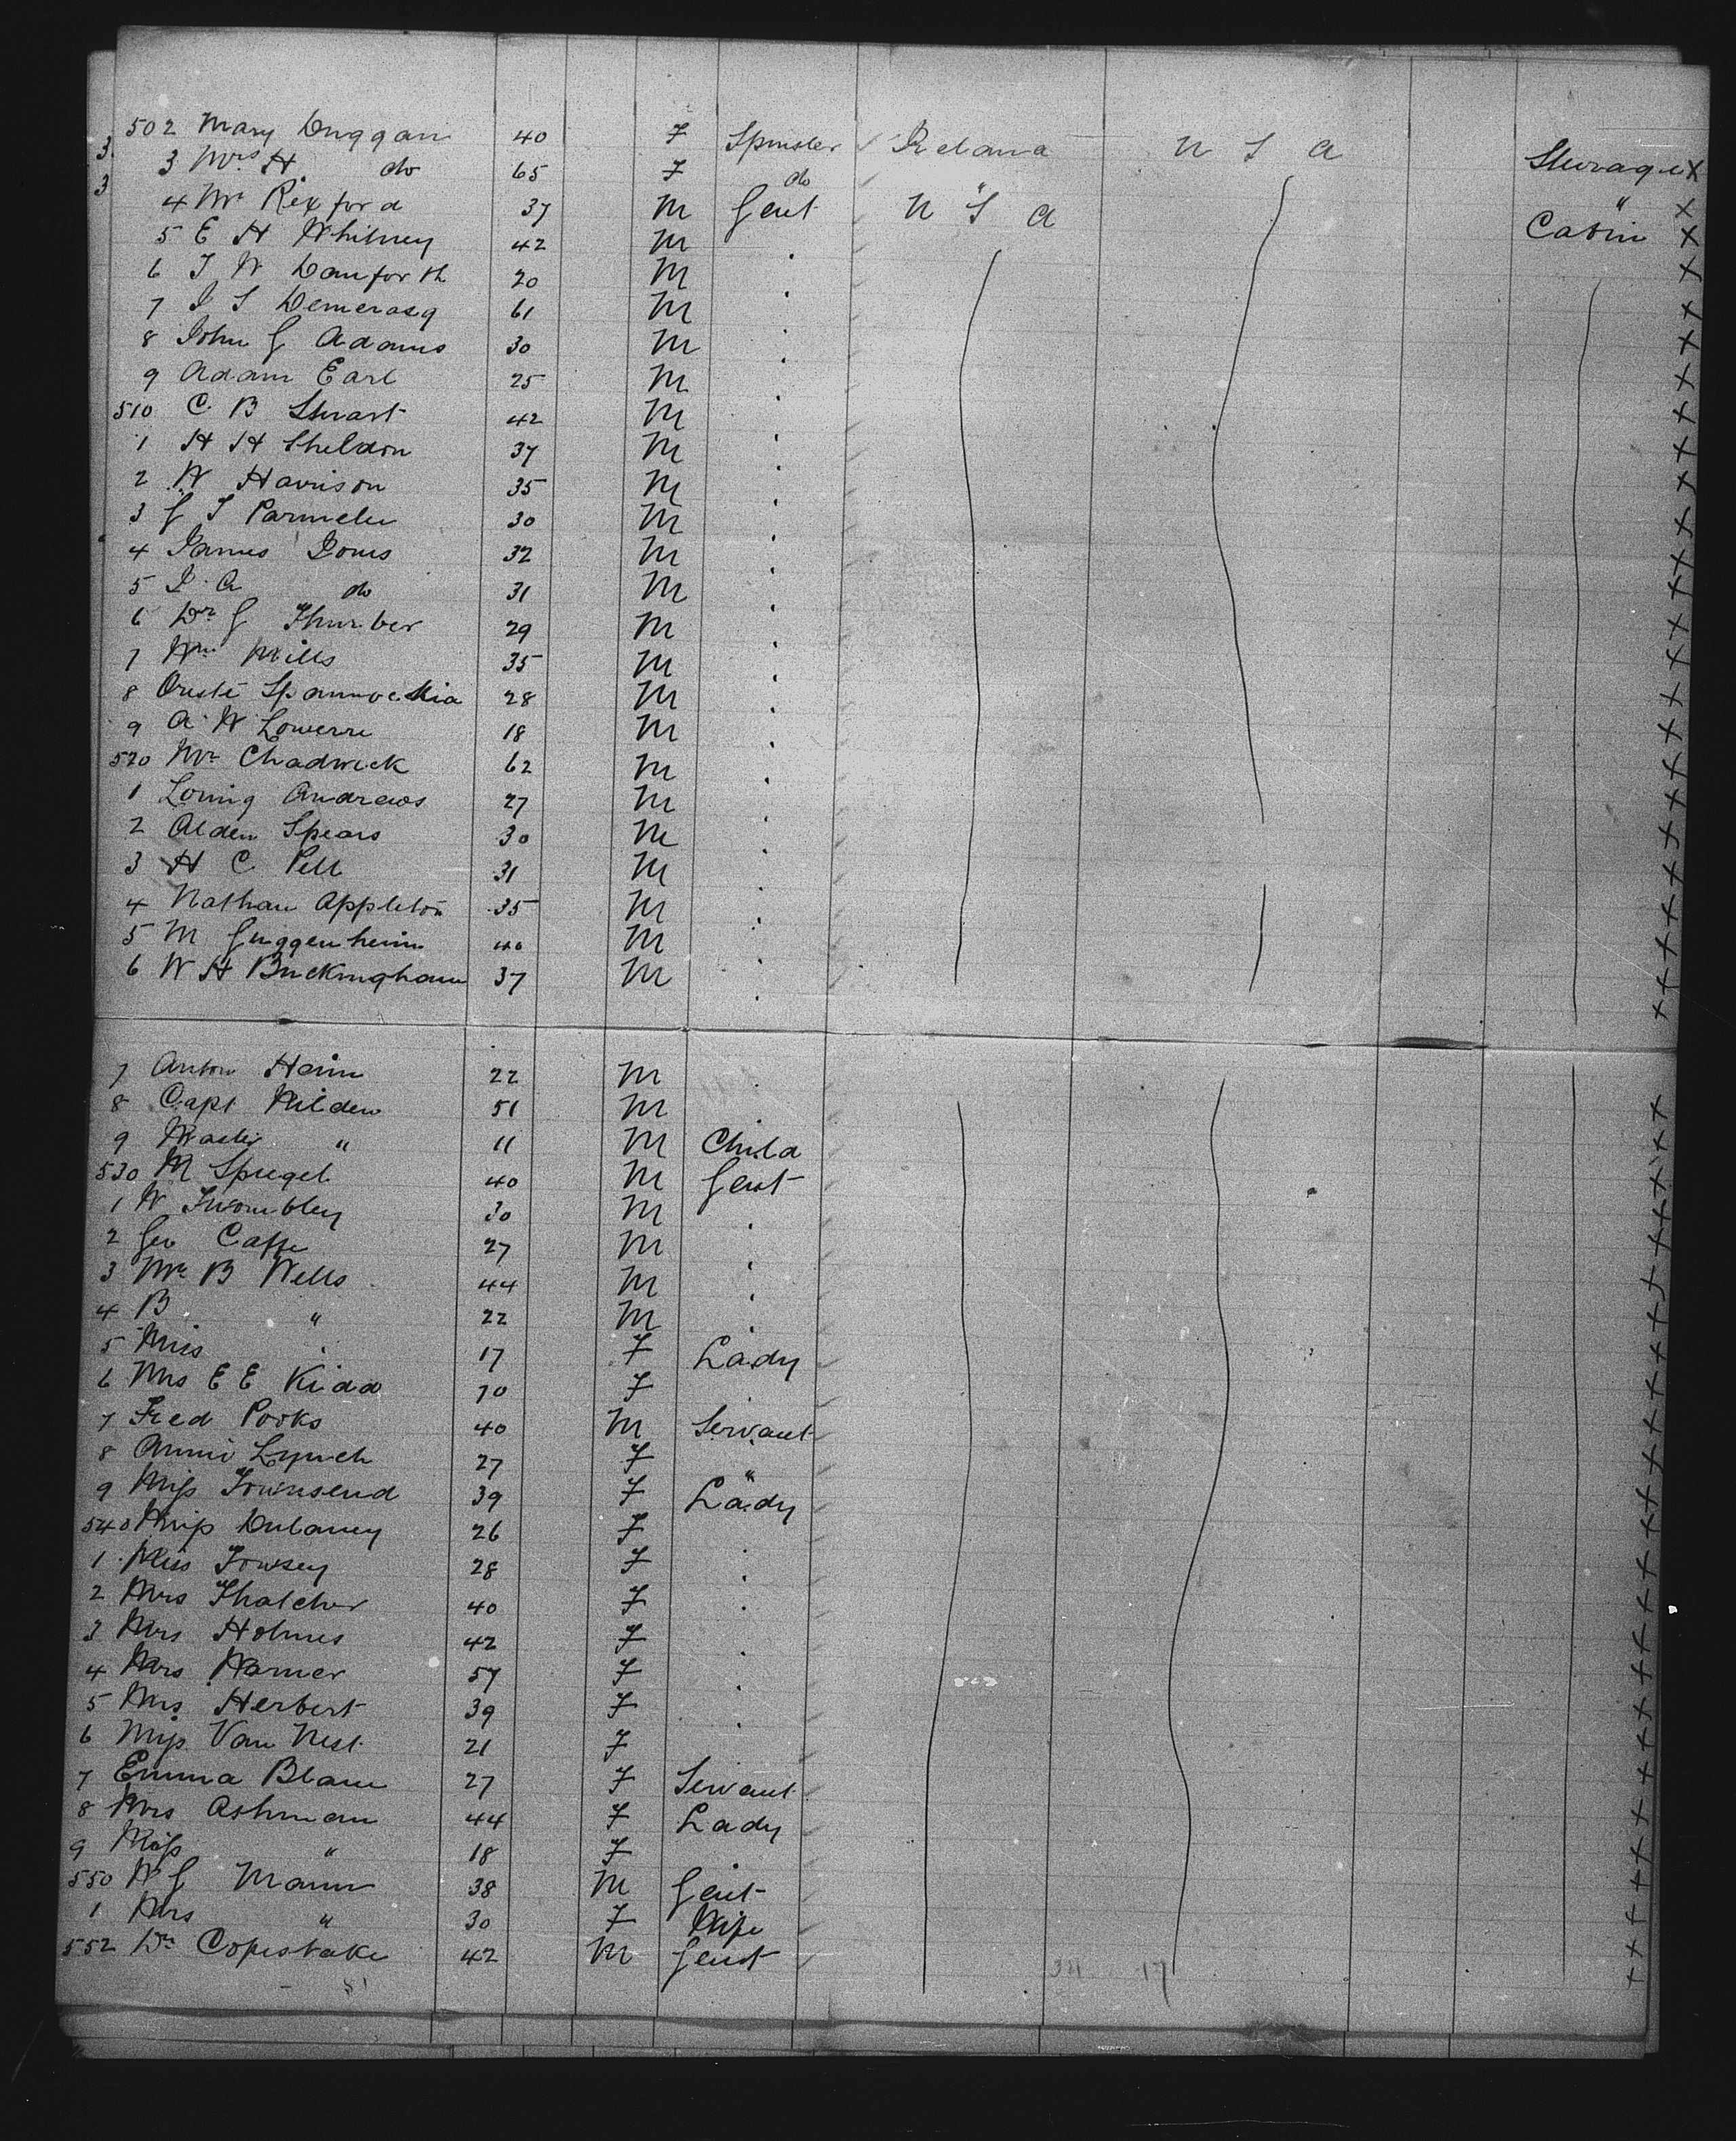 502 Mary Duggan 40 F Spinster Ireland U S A Steerage X
3 Mrs H. do 65 F do " " X
4 Mr Rexford 37 M Gent U S A Cabin X
5 E H Whitney 42 M X
6 T W Danforth 20 M X
7 61 M X
8 John G Adams 30 M X
9 Adam Earl 25 M X
510 C. B Stuart 42 M X
1 H H Sheldon 37 M X
2 W Harrison 35 M X
3 G T Parmelee 30 M X
4 James Jones 32 M X
5 J. A do 31 M X
6 Dr G Thurber 29 M X
7 Wm Mills 35 M X
8 Oreste 28 M X
9 A. W. Lowerre 18 M X
520 Mr Chadwick 62 M X
1 Loring Andrews 27 M X
2 Alden Spears 30 M X
3 H C Pell 31 M X
4 Nathan Appleton 35 M X
5 M Guggenheim 40 M X
6 W H Buckingham 37 M X
7 Anton Heim 22 M X
8 Capt Wilden 51 M X
9 Master " 11 M Child X
530 M Spiegel 40 M Gent X
1 W Twombley 30 M X
2 Geo 27 M X
3 Mr B Wells 44 M X
4 B " 22 M X
5 Miss 17 F Lady X
6 Mrs E E Kidd 70 F X
7 Fred Pooks 40 M Servant X
8 Annie Lynch 27 F " X
9 Miss Townsend 39 F Lady X
540 Miss Dulaney 26 F X
1 Miss Towsey 28 F X
2 Mrs Thatcher 40 F X
3 Mrs Holmes 42 F X
4 Mrs Warner 57 F X
5 Mrs Herbert 39 F X
6 Miss Van Nest 21 F X
7 Emma Blane 27 F Servant X
8 Mrs Ashman 44 F Lady X
9 Miss " 18 F X
550 W G Mann 38 M Gent X
1 Mrs " 30 F Wife X
552 Dr Copestake 42 M Gent X